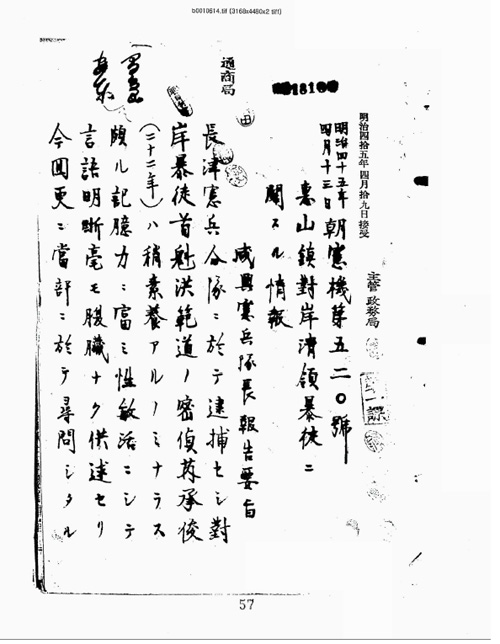 b0010614.tif (3168x4480x2 tiff)
18100
明治四拾五年四月拾九日接受
主管 政務局
第一課
通商局
明治四十五年
四月十三日
朝憲機第五二〇號
惠山鎮對岸清領暴徒ニ
關スル情報
咸興憲兵隊長報告要旨
長津憲兵分隊ニ於テ逮捕セシ對
岸暴徒首魁洪範道ノ密偵苒承俊
(二十二年)ハ稍素養アルノミナラス
頗ル記臆力ニ富ミ性敏活ニシテ
言語明晰毫モ腹臓ナク供述セリ
今回更ニ當部ニ於テ尋問シタル
57